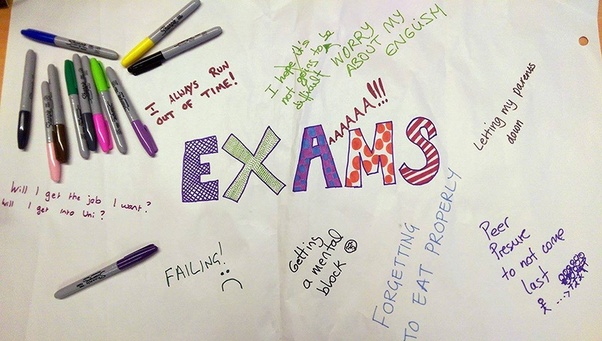 I ALWAYS RUN
OUT OF TIME!
I hope it's
not going to be
difficult
WORRY
ABOUT MY
ENGLISH
AAAAAA!!!
Letting my parents
down
EXAMS
Will I get the job I want?
Will I get into Uni?
FAILING!
Getting
a mental
block
FORGETTING
TO EAT PROPERLY
Peer
Presure
to not come
last